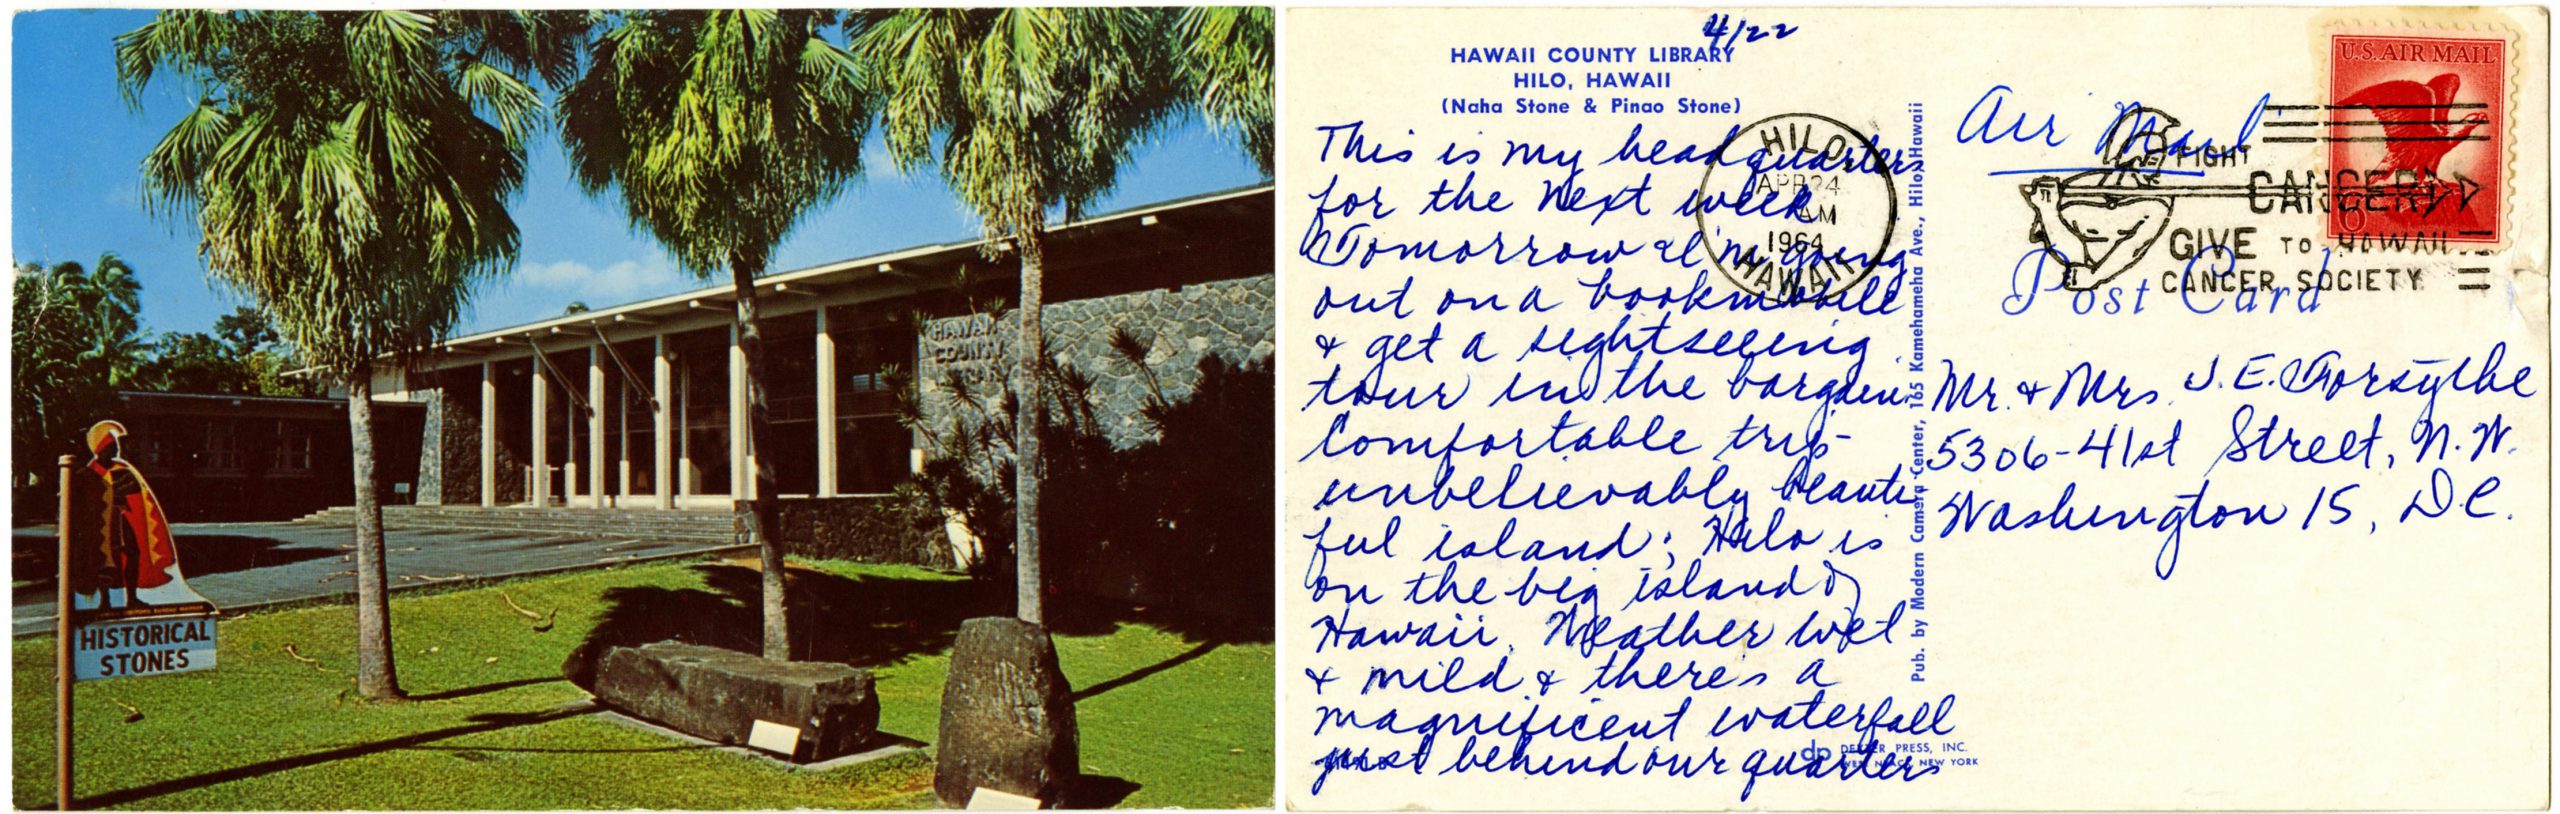 HAWAII
COUNTY
LIBRARY
HISTORICAL
STONES
4/22
HAWAII COUNTY LIBRARY
HILO, HAWAII
(Naha Stone & Pinao Stone)
This is my headquarters
for the next week
Tomorrow I'm going
out on a bookmobile
& get a sightseeing
tour in the bargain.
Comfortable trip -
unbelievably beauti
ful island; Hilo is
on the big island of
Hawaii. Weather wet
& mild & there's a
magnificent waterfall
just behind our quarters
HILO
APR 24
AM
1964
HAWAII
Pub. by Modern Camera Center, 165 Kamehameha Ave., Hilo, Hawaii
DEXTER PRESS, INC.
WEST NYACK, NEW YORK
dp
U.S. AIR MAIL
6
Air Mail
FIGHT
CANCER
GIVE TO HAWAII
CANCER SOCIETY
Post Card
Mr. & Mrs. J. E. Forsythe
5306-41st Street, N.W.
Washington 15, D.C.